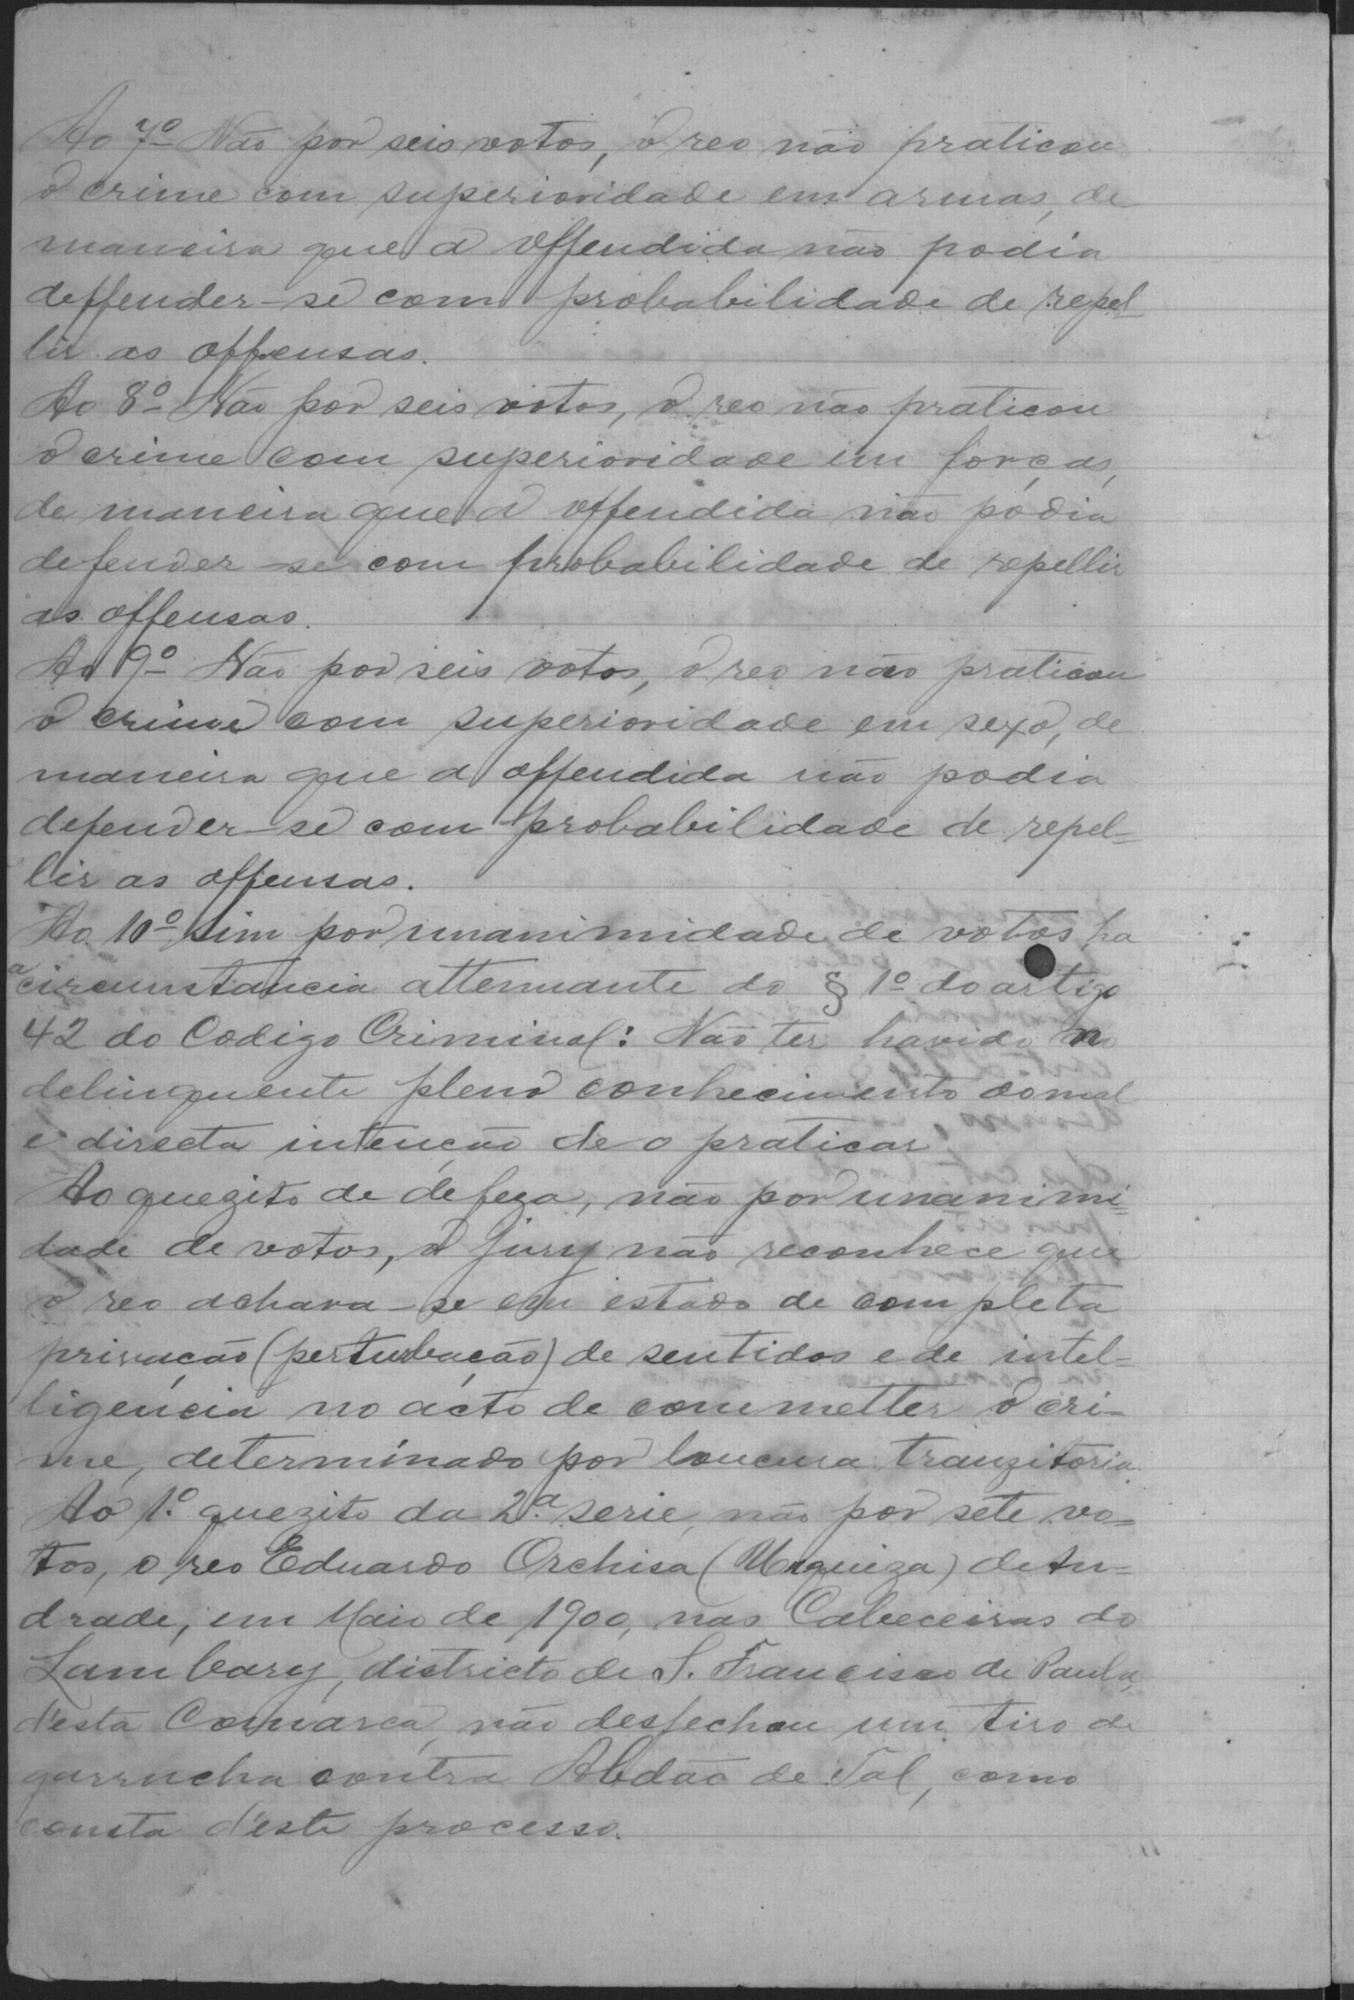 Ao 7º Não por seis votos, o reo não praticou
o crime com superioridade em armas, de
maneira que a offendida não podia
deffender-se com probabilidade de repel-
lir as offensas.
Ao 8º Não por seis votos, o reo não praticou
o crime com superioridade em forças,
de maneira que a offendida não podia
defender-se com probabilidade de repellir
as offensas.
Ao 9º Não por seis votos, o reo não praticou
o crime com superioridade em sexo, de
maneira que a offendida não podia
defender-se com probabilidade de repel-
lir as offensas.
Ao 10º sim por unanimidade de votos ha
a circunstancia attenuante do § 1º do artigo
42 do Codigo Criminal: Não ter havido no
delinquente pleno conhecimento do mal
e directa intenção de o praticar
Ao quezito de defeza, não por unanimi-
dade de votos, o jury não reconhece que
o reo achava-se em estado de completa
privação (perturbação) de sentidos e de intel-
ligencia no acto de commetter o cri-
me, determinado por loucura tranzitoria.
Ao 1º quezito da 2ª serie, não por sete vo-
tos, o reo Eduardo Orchisa (Urquiza) de An-
drade, em Maio de 1900, nas Cabeceiras do
Lambary, districto de S. Francisco de Paula,
d'esta Comarca, não desfechou um tiro de
garrucha contra Abdão de Tal, como
consta d'este processo.